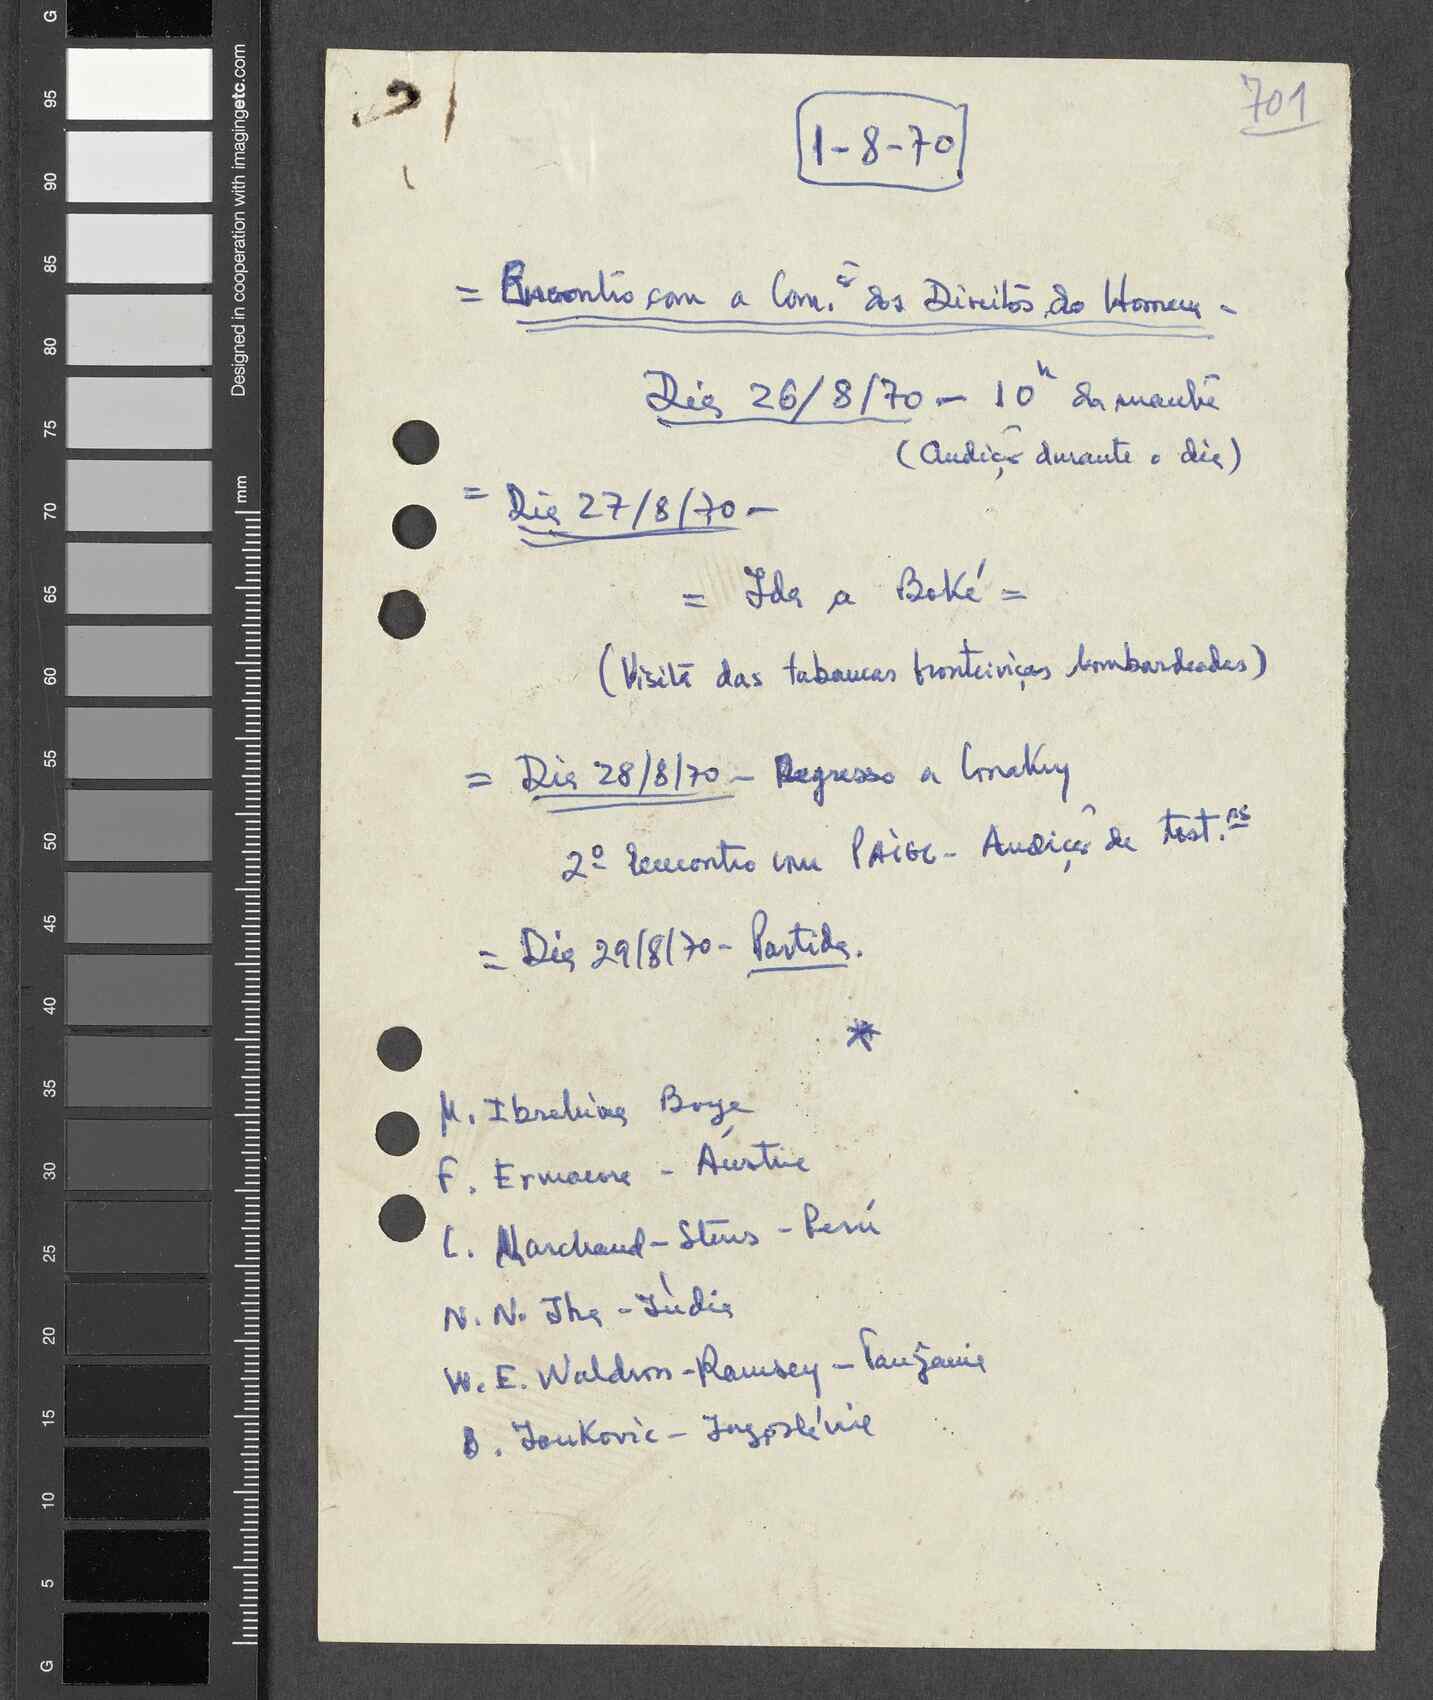 701
1-8-70
= Encontro com a Com.ã dos Direitos do Homem -
Dia 26/8/70 - 10h da manhã
(Audição durante o dia)
= Dia 27/8/70 -
= Ida a Boké =
(Visita das tabancas fronteiriças bombardeadas)
= Dia 28/8/70 - Regresso a Conakry
2º Encontro com PAIGC - Audição de test.as
= Dia 29/8/70 - Partida.
*
M. Ibrahima Boye
F. Ermacora - Áustria
L. Marchand-Stens - Perú
N. N. Jha - Índia
W. E. Waldron-Ramsey - Tanzania
B. Jankovic - Jugoslávia
Designed in cooperation with imagingetc.com
mm
G
95
90
85
80
75
70
65
60
55
50
45
40
35
30
25
20
15
10
5
G